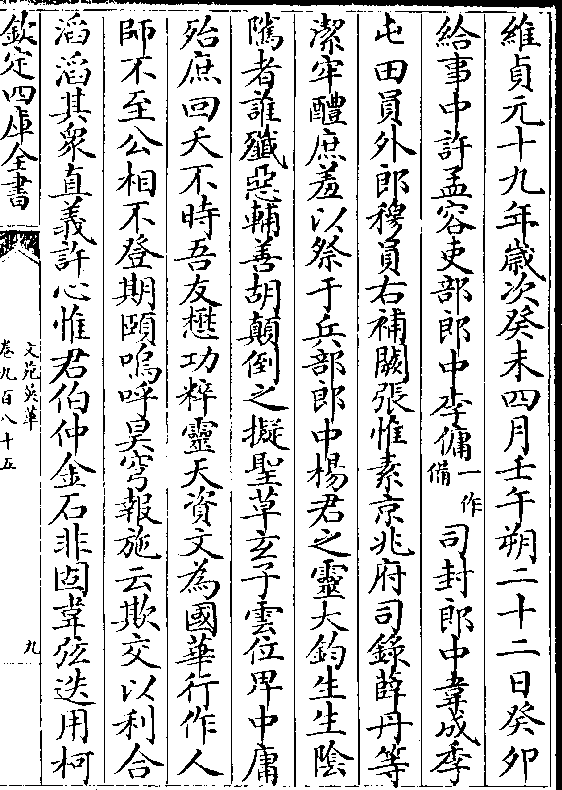 維貞元十九年歲次癸未四月壬午朔二十二日癸卯
給事中許孟容吏部郎中李傭一作備司封郎中韋成季
屯田員外郎穆員右補闕張惟素京兆府司錄薛丹等
潔牢醴庶羞以祭于兵部郎中楊君之靈大鈞生生陰
隲者誰殱惡輔善胡顛倒之擬聖草玄子雲位卑中庸
殆庶回夭不時吾友懋功粹靈天資文為國華行作人
師不至公相不登期頤嗚呼昊穹報施云欺交以利合
滔滔其衆直義許心惟君伯仲金石非固韋弦迭用柯
欽定四庫全書
文苑英華
卷九百八十五
九